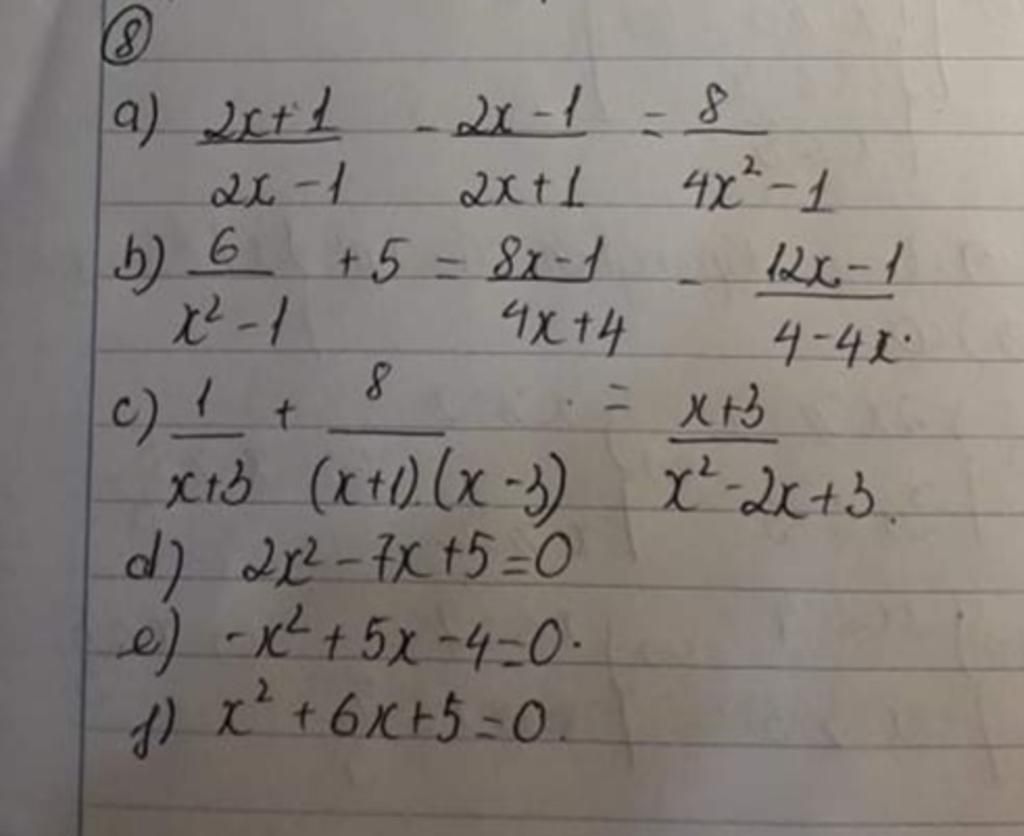 8
a) (2x+1)/(2x-1) - (2x-1)/(2x+1) = 8/(4x²-1)
b) 6/(x²-1) + 5 = (8x-1)/(4x+4) - (12x-1)/(4-4x).
c) 1/(x+3) + 8/((x+1).(x-3)) = (x+3)/(x²-2x+3).
d) 2x²-7x+5=0
e) -x²+5x-4=0.
f) x²+6x+5=0.